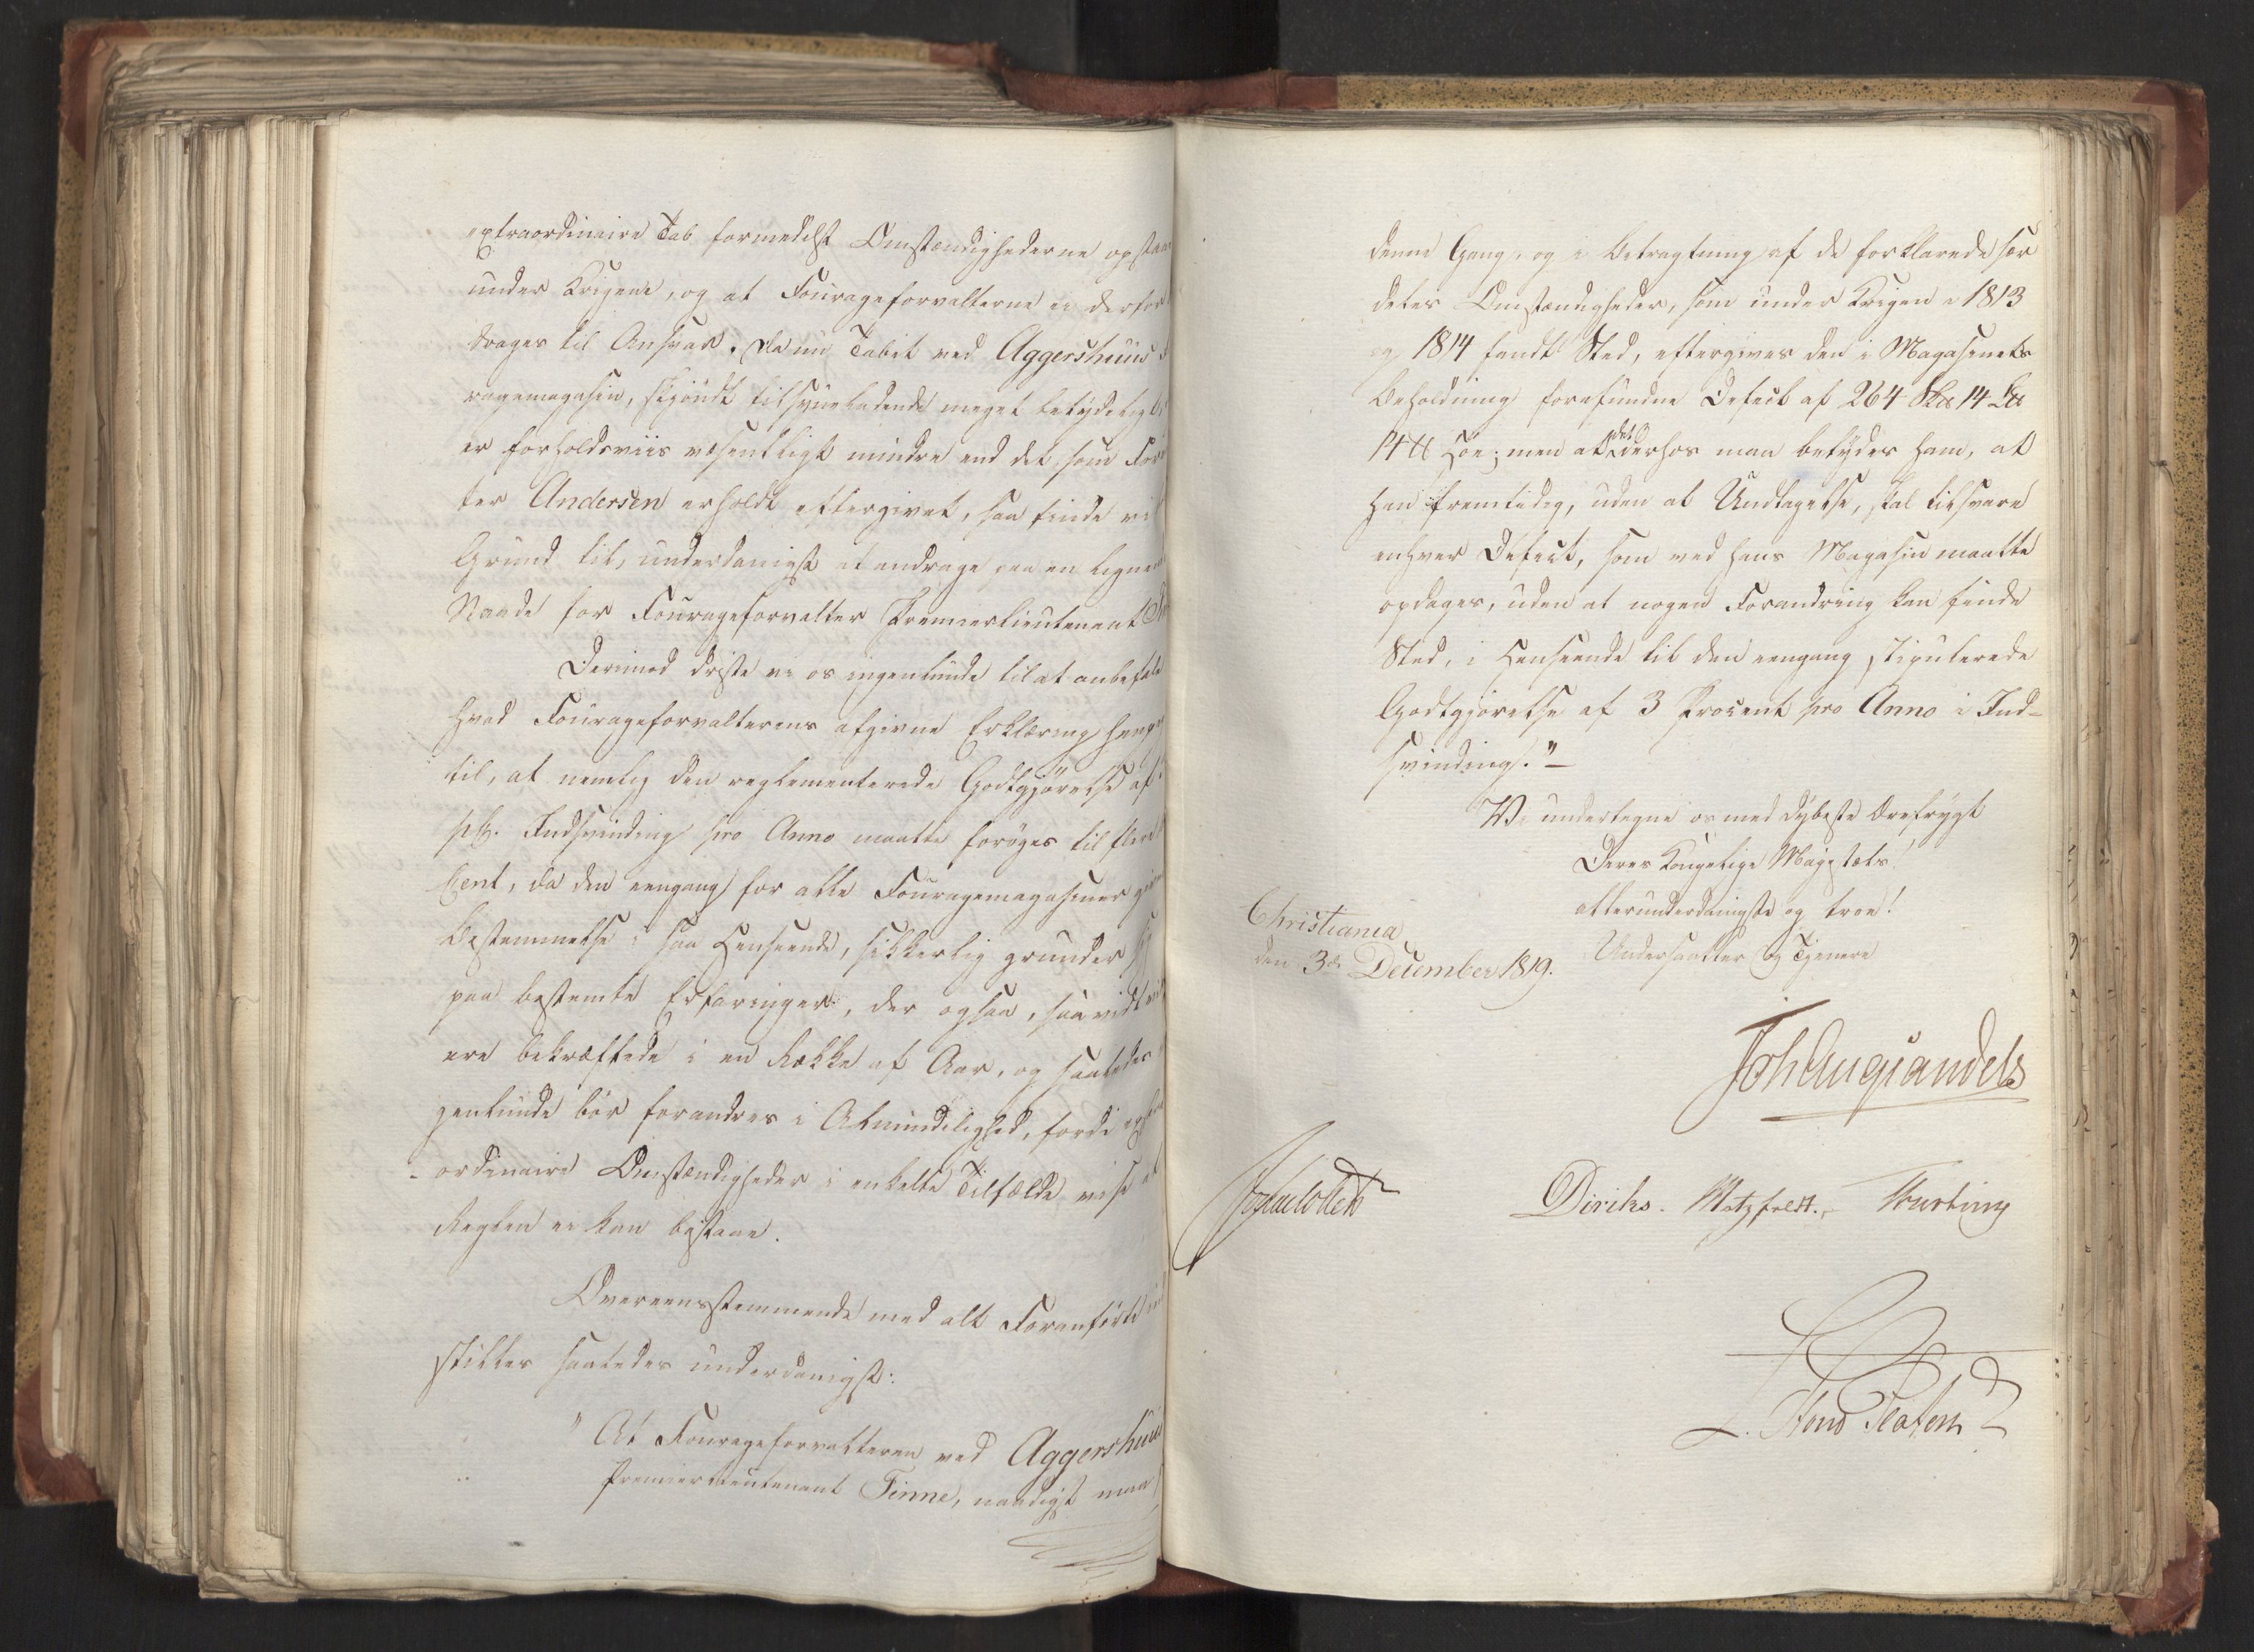 extraordinaire Tab formedelst Omstændighederne opstaae
under Krigene, og at Fourageforvalterne ei derfor
drages til Ansvar. Da nu Tabet ved Aggershuus
ragemagasin, skjøndt tilsyneladende meget betydeligt
er forholdsviis væsentligt mindre end det, som For
ter Andersen erholdt eftergivet, saa finde vi
Grund til, underdanigst at andrage paa en lignen
Naade for Fourageforvalter Premierlieutenant
Derimod driste vi os ingenlunde til at anbefale
hvad Fourageforvalterens afgivne Erklæring
til, at nemlig den reglementerede Godtgjørelse af
pCt. Indsvinding pro Anno maatte forøges til flere
Cent, da den eengang for alle Fouragemagasiner
Bestemmelse i saa Henseende, sikkerlig grunder
paa bestemte Erfaringer, der ogsaa, saavidt
ere bekræftede i en Række af Aar, og saaledes
genlunde bør forandres i Almindelighed, fordi ext
ordinaire Omstændigheder i enkelte Tilfælde vise at
Reglen ei kan bestaae.
Overeensstemmende med alt Foranførte
stilles saaledes underdanigst:
"At Fourageforvalteren ved Aggershuus
Premierlieutenant Finne, naadigst maa
denne Gang, og i Betragtning af de forklarede sær
deles Omstændigheder, som under Krigen i 1813
og 1814 fandt Sted, eftergives den i Magasinets
Beholdning forefundne Defect af 264 Sk℔ 14 L℔
14 ℔ Høe; men at det derhos maa betydes ham, at
han fremtidig, uden al Undtagelse, skal tilsvare
enhver Defect, som ved hans Magasin maatte
opdages, uden at nogen Forandring kan finde
Sted, i Henseende til den eengang stipulerede
Godtgjørelse af 3 Procent pro Anno i Ind-
svinding."—
Vi undertegne os med dybeste Ærefrygt
Deres Kongelige Majestæts!
allerunderdanigste og troe!
Undersaatter og Tjenere
Christiania
den 3de December 1819.
Joh Aug Sandels
Jonas Collett
Diriks. Motzfeldt. Krebting